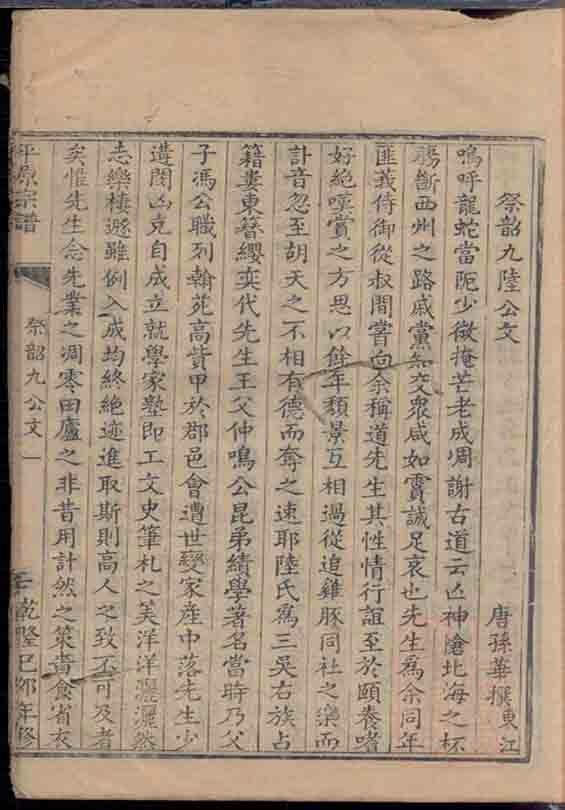 祭韶九陸公文
唐孫華撰東江
嗚呼龍蛇當阨少微掩芒老成凋謝古道云亡神愴北海之杯
腸斷西州之路戚黨知交衆咸如霣誠足哀也先生爲余同年
匪莪侍御從叔間嘗向余稱道先生其性情行誼至於頤養嗜
好絶嘆賞之方思以餘年頽景互相過從追雞豚同社之樂而
訃音忽至胡天之不相有德而奪之速耶陸氏爲三吳右族占
籍婁東簪纓奕代先生王父仲鳴公昆弟績學著名當時乃父
子馮公職列翰苑高貲甲於郡邑會遭世變家産中落先生少
遘閔凶克自成立就學家塾即工文史筆札之美洋洋灑灑然
志樂棲遯雖例入成均終絶迹進取斯則高人之致不可及者
矣惟先生念先業之凋零田廬之非昔用計然之策嗇食省衣
平原宗譜
祭韶九公文
一
乾隆己卯年修